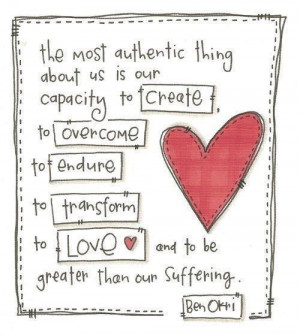 the most authentic thing
about us is our
capacity to create,
to overcome
to endure
to transform
to Love and to be
greater than our suffering.
Ben Okri